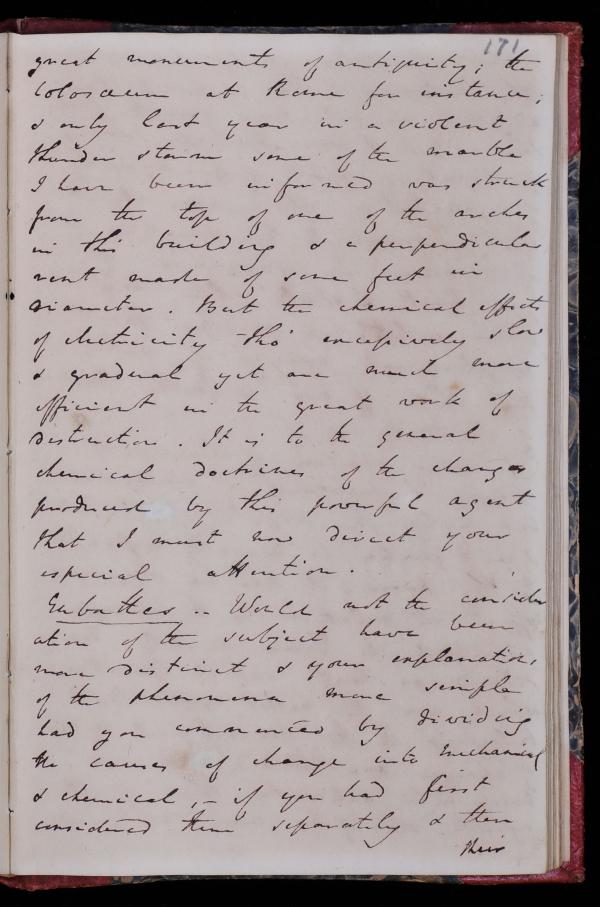 171
great monuments of antiquity; the
Colosæum at Rome for instance;
& only last year in a violent
thunder storm some of the marble
I have been informed was struck
from the top of one of the arches
in this building & a perpendicular
rent made of some feet in
diameter. But the chemical effects
of electricity tho' excessively slow
& gradual yet are much more
efficient in the great work of
destruction. It is to the general
chemical doctrines of the changes
produced by this powerful agent
that I must now direct your
especial attention.
Eubathes -- Would not the consider
ation of the subject have been
more distinct & your explanations
of the phenomena more simple
had you commenced by dividing
the causes of change into mechanical
& chemical, – if you had first
considered them separately & then
their